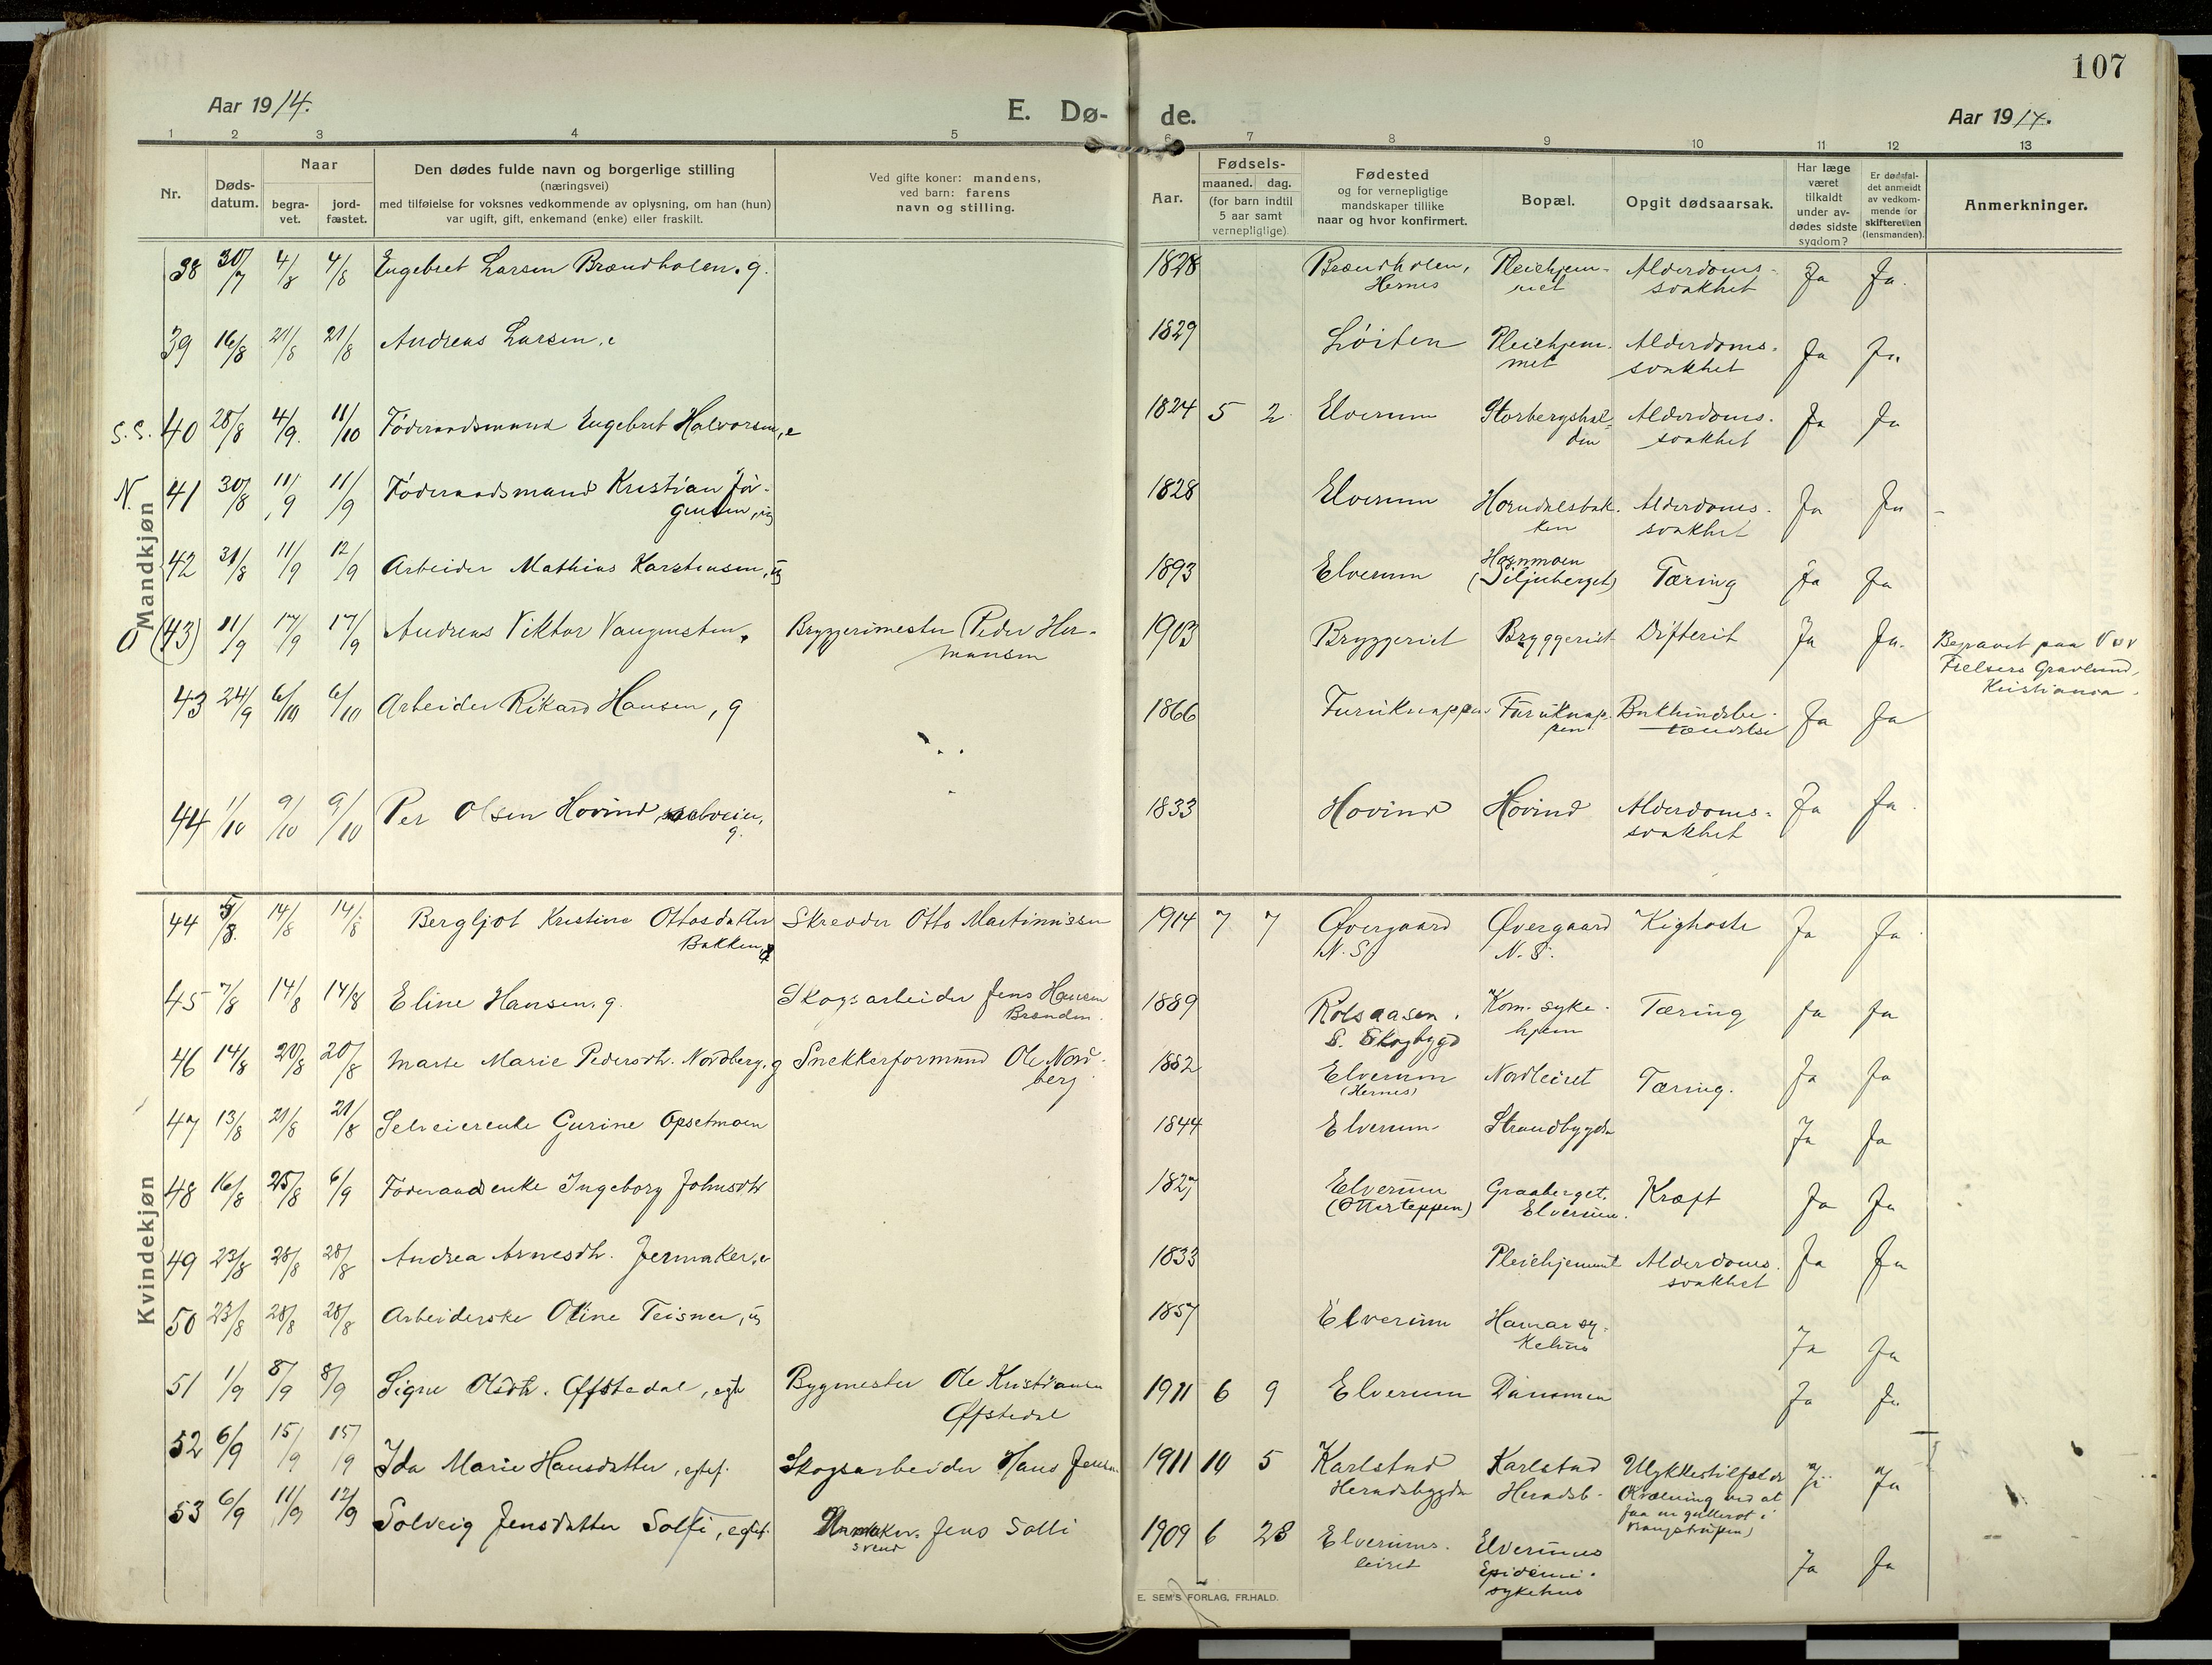 107
Aar 1914.
E. Dø-
de.
Aar 1914.
1 2 3 4 5 6 7 8 9 10 11 12 13
Nr.
Døds-
datum.
Naar
begra-
vet.
jord-
fæstet.
Den dødes fulde navn og borgerlige stilling
(næringsvei)
med tilføielse for voksnes vedkommende av oplysning, om han (hun)
var ugift, gift, enkemand (enke) eller fraskilt.
Ved gifte koner: mandens,
ved barn: farens
navn og stilling.
Aar.
Fødsels-
maaned. dag.
(for barn indtil
5 aar samt
vernepligtige)
Fødested
og for vernepligtige
mandskaper tillike
naar og hvor konfirmert.
Bopæl.
Opgit dødsaarsak.
Har læge
været
tilkaldt
under av-
dødes sidste
sygdom?
Er dødsfal-
det anmeldt
av vedkom-
mende for
skifteretten
(lensmanden).
Anmerkninger.
Mandkjøn
38 30/7 4/8 4/8 Engebret Larsen Brændholen. g. 1828 Brændholen, Pleiehjem- Alderdoms- Ja Ja.
Hernes met svakhet
39 16/8 21/8 21/8 Andreas Larsen, e 1829 Löiten Pleiehjem- Alderdoms- Ja Ja
met svakhet
S.S. 40 28/8 4/9. 11/10 Föderaadsmand Engebret Halvorsen, e 1824 5 2 Elverum Storbergshal- Alderdoms- Ja Ja
den svakhet
N. 41 30/8 11/9 11/9 Föderaadsmand Kristian Jör- 1828 Elverum Horndalsbak- Alderdoms- Ja Ja
gensen, ug ken svakhet
42 31/8 11/9 12/9 Arbeider Mathias Karstensen, ug 1893 Elverum Hagnmoen Tæring Ja Ja
(Siljuberget)
O (43) 11/9 17/9 17/9 Andreas Viktor Vaugensten. Bryggerimester Peder Her- 1903 Bryggeriet Bryggeriet Difterit Ja Ja. Begravet paa Vor
mansen Frelsers Gravlund,
Kristiania.
43 24/9 6/10 6/10 Arbeider Rikard Hansen, g 1866 Furuknappen Furuknap- Bukhindebe- Ja Ja
pen tændelse
44 1/10 9/10 9/10 Per Olsen Hovind, selveier, 1833 Hovind Hovind Alderdoms- Ja Ja
g. svakhet
Kvindekjøn
44 5/8. 14/8 14/8 Bergljot Kristine Ottosdatter Skredder Otto Martinussen 1914 7 7 Øvergaard Øvergaard Kighoste Ja Ja
Bakken, N.S. N.S.
45 7/8 14/8 14/8 Eline Hansen. g. Skogsarbeider Jens Hansen 1889 Rolsaasen, Kom. syke- Tæring Ja Ja
Brænden. S. Skogbygd hjem
46 14/8 20/8 20/8 Marte Marie Pedersdtr. Nordberg, g Snekkerformand Ole Nord- 1852 Elverum Nordleiret Tæring. Ja Ja
berg (Hernes)
47 13/8 21/8 21/8 Selveierenke Gurine Opsetmoen 1844 Elverum Strandbygda Ja Ja
48 16/8 25/8 6/9 Föderaadsenke Ingeborg Johnsdtr 1827 Elverum Graaberget. Kræft Ja Ja
(Otterteppen) Elverum.
49 23/8 28/8 28/8 Andrea Arnesdtr. Jermaker, e 1833 Pleiehjemmet Alderdoms- Ja Ja
svakhet
50 23/8 28/8 28/8 Arbeiderske Oline Teisner, ug 1857 Elverum Hamar sy- Ja Ja
kehus
51 1/9 8/9 8/9 Signe Olsdtr. Offstedal, egte Bygmester Ole Kristiansen 1911 6 9 Elverum Danomen Ja Ja
Offstedal
52 6/9 15/9 15/9 Ida Marie Hansdatter, egtef. Skogsarbeider Hans Jensen 1911 10 5 Karlstad Karlstad Ulykkestilfælde Ja Ja
Heradsbygda Heradsb. (Kvælning ved at
faa en gullerot i
vrangstrupen)
53 6/9 11/9 12/9 Solveig Jensdatter Solli, egtef. Jens Solli 1909 6 28 Elverums- Elverums Ja Ja
svend leiret Epidemi-
sykehus
E. SEM'S FORLAG, FR.HALD.